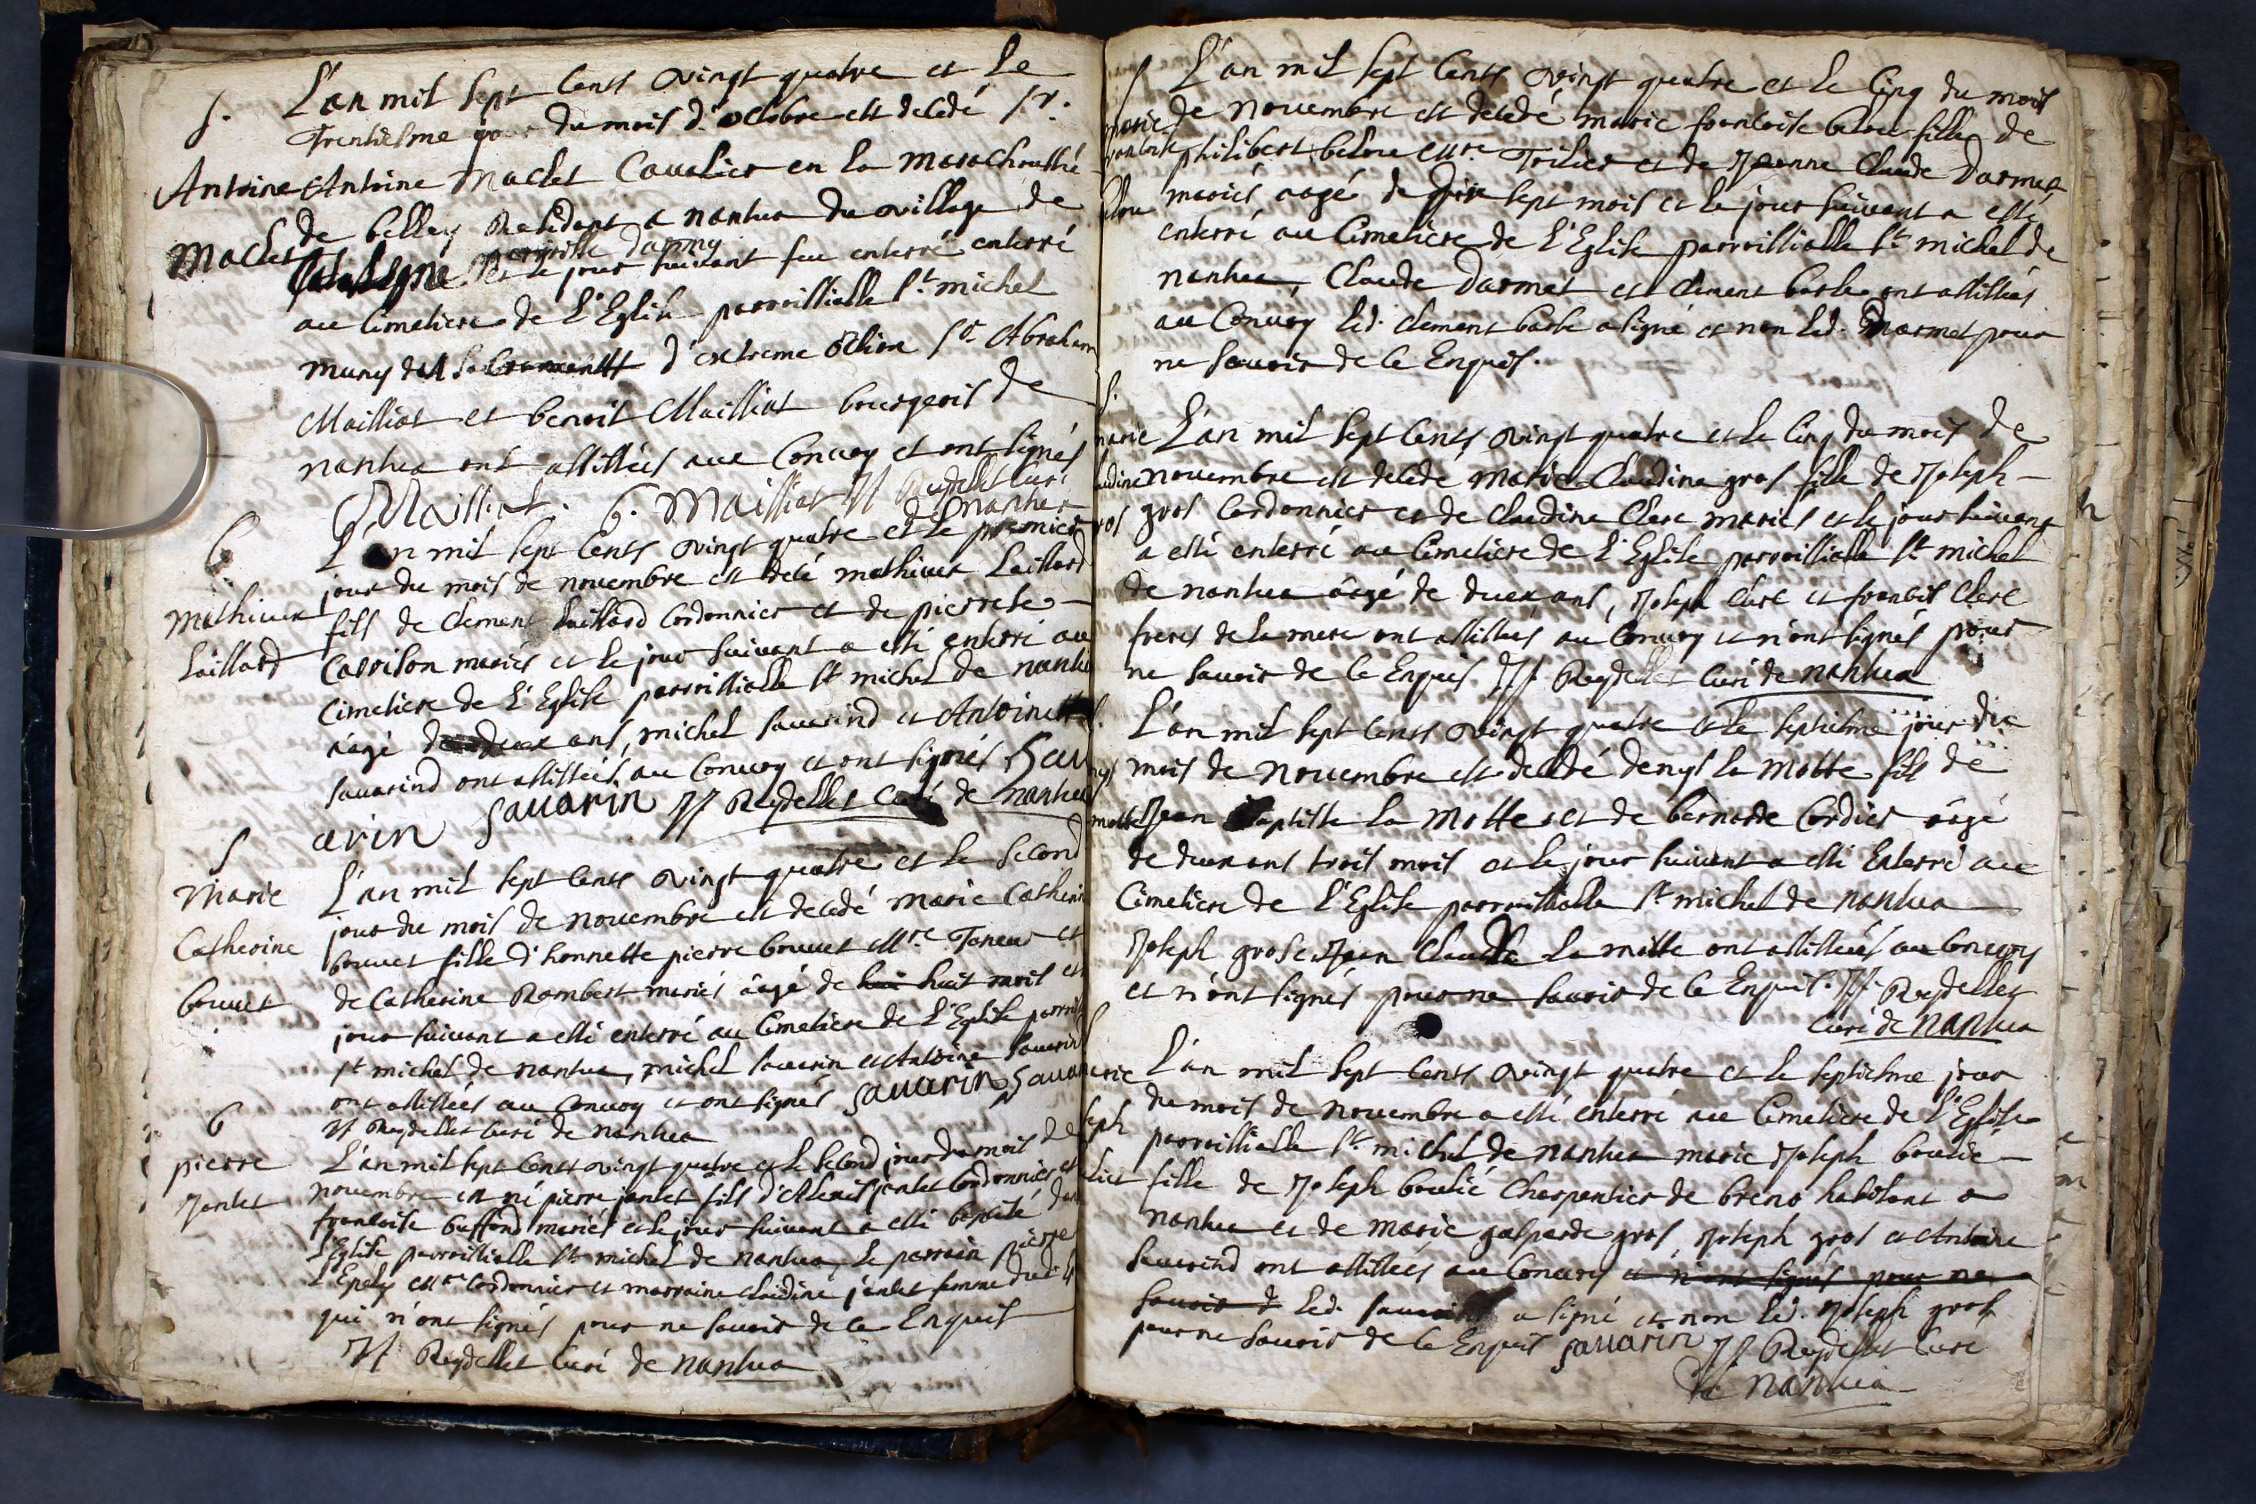 S.
L'an mil sept Cents vingt quatre et Le
Trentiesme jour du mois d'octobre est decedé sr.
Antoine Antoine Maclet Cavalier en la Marechaussé
Maclet de belley Residant a nantua du village de
parroisse
et le jour suivant feu enterré enterré
au Cimetiere de L'Eglise parroissialle st. michel
muny des Sacrements d'extreme octïon sr. Abraham
Mailliat et benoit Mailliat bourgeois de
nantua ont assistées aux Convoy et ont signés
Mailliat. b. Mailliat JJ Reydellet Curé
nantua
b
L'an mil sept Cents vingt quatre et Le premier
jour du mois de novembre est mathieux Laillard
mathieux
Laillard
fils de Clement Laillard Cordonnier et de pierrete
Carrison mariés et le jour suivant a esté enterré au
Cimetiere de L'Eglise parroissialle st michel de nantu
aagé ans, michel savarind et Antoine
savarind ont assistées au Convoy et ont signés Sav
arin savarin JJ Reydellet Curé de nantua
S
Marie
Catherine
bouvet
L'an mil sept Cents vingt quatre et le second
jour du mois de novembre est decedé marie Catherin
bouvet fille d'honnette pierre bouvet Mtre Taneur et
de Catherine Rambert mariés aagé de huit mois et
jour suivant a esté enterré au Cimetiere de L'Eglise parrois
st michel de nantua, michel savarin et Antoine savarin
ont assistées au Convoy et ont signés savarin Savar
JJ Reydellet Curé de nantua
b
pierre
Janlet
L'an mil sept Cents vingt quatre et le second jour du mois de
novembre est né pierre janlet fils d'Alexis janlet Cordonnier et
francoise buffond mariés et le jour suivant a esté baptisé dan
L'Eglise parroissialle st michel de nantua, Le parrain pierre
L'Epely Mtre Cordonnier et marraine Claudine janlet femme dudit
qui n'ont signés pour ne savoir de ce Enquis
JJ Reydellet Curé de nantua
S
L'an mil sept Cents vingt quatre et le Cinq du mois
marie de novembre est decedé marie francoise belou fille de
philibert belou Mtre Toilier et de Jeanne Claude Darmet
mariés aagé de sept mois et le jour suivant a esté
enterré au Cimetiere de L'Eglise parroissialle st michel de
nantua, Claude Darmet et Clement barbe ont assistées
au Convoy led. Clement barbe a signé et non led. Darmet pour
ne savoir de ce Enquis.
S.
marie L'an mil sept Cents vingt quatre et le Cinq du mois de
audine novembre est decede Marie Claudine gros fille de Joseph
ros gros Cordonnier et de Claudine Clerc mariés et le jour suivant
a esté enterré au Cimetiere de L'Eglise parroissialle st michel
de nantua aagé de deux ans, Joseph Clerc et francois Clerc
freres de la mere ont assistées au Convoy et n'ont signés pour
ne savoir de ce Enquis JJ Reydellet Curé de nantua
L'an mil sept Cents vingt quatre et le septiesme jour du
mois de novembre est decedé denys la Motte fils de
motte Jean Baptiste la Motte et de bernarde Cordier aagé
de deux ans trois mois et le jour suivant a esté Enterré au
Cimetiere de L'Eglise parroissialle st michel de nantua
Joseph gros et Jean Claude la motte ont assistées au Convoy
et n'ont signés pour ne savoir de ce Enquis. JJ. Reydellet
Curé de nantua
arie L'an mil sept Cents vingt quatre et le septiesme jour
du mois de novembre a esté enterré au Cimetiere de L'Eglise
seph parroissialle st. michel de nantua marie Joseph boulié
fille de Joseph boulié Charpentier de breno habitant a
nantua et de marie gasparde gros, Joseph gros et Antoine
savarind ont assistées au Convoy et n'ont signés pour ne
savoir d led. savarin a signé et non led. Joseph gros
pour ne savoir de ce Enquis savarin JJ Reydellet Curé
de nantua